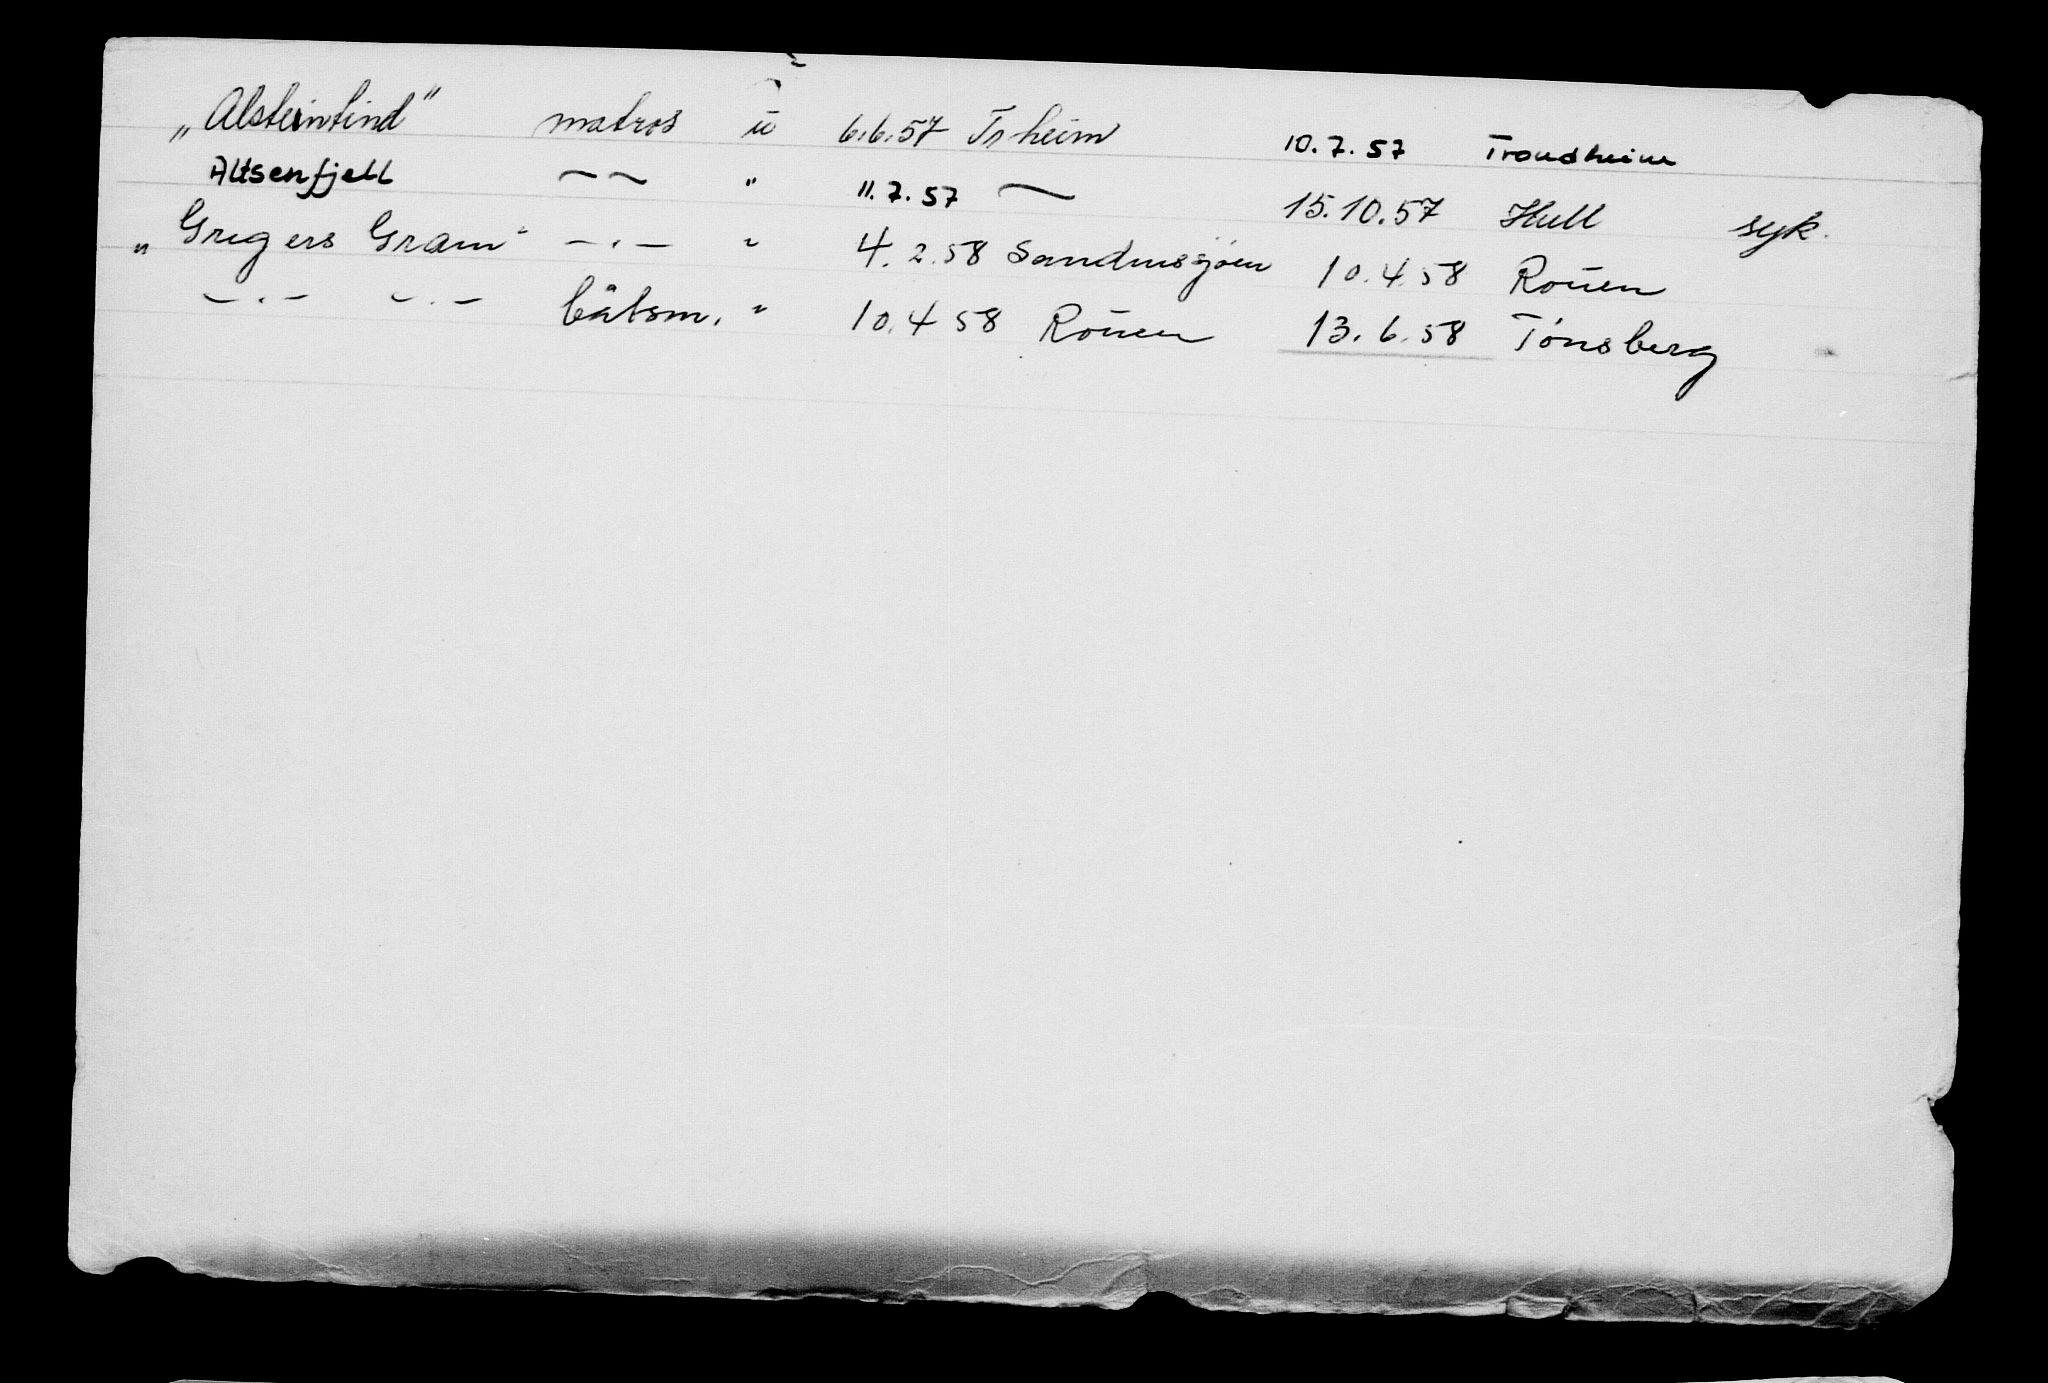 „Alsteintind" matros ū 6.6.57 Tr heim 10.7.57 Trondheim
Altsenfjell ~~ " 11.7.57 ~ 15.10.57 Hull syk.
„Gregers Gram" -"- " 4.2.58 Sandnessjøen 10.4.58 Rouen
-"- -"- båtsm. " 10.4 58 Rouen 13.6.58 Tønsberg